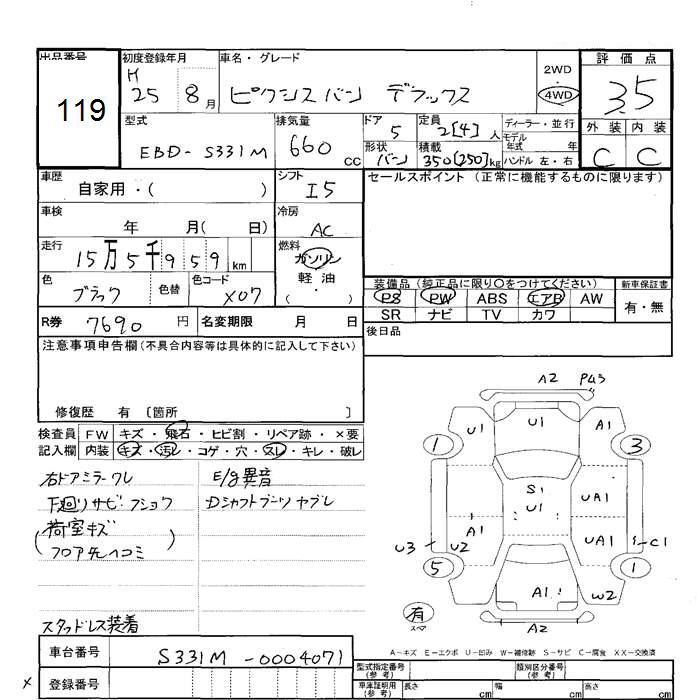 出品番号 初度登録年月 車名・グレード 評価点
119
H 25 8月
ピクシスバン デラックス
2WD
4WD
3.5
型式 排気量 ドア 定員 ディーラー・並行 外装 内装
EBD-S331M 660cc 5 2[4]人 モデル年式 年
形状 積載 ハンドル 左・右 C C
バン 350[250]kg
車歴 シフト セールスポイント (正常に機能するものに限ります)
自家用・( ) I5
車検 冷房
年 月( 日) AC
走行 燃料
15万5千959km ガソリン
軽油
( ・ )
色 色替 色コード 装備品 (純正品に限り○をつけてください) 新車保証書
ブラック X07 PS PW ABS エアB AW 有・無
SR ナビ TV カワ
R券 7690円 名変期限 月 日 後日品
注意事項申告欄(不具合内容等は具体的に記入して下さい)
修復歴 有 〔箇所 〕
検査員 FW キズ・飛石・ヒビ割・リペア跡・×要
記入欄 内装 キズ・汚レ・コゲ・穴・スレ・キレ・破レ
右ドアミラーワレ E/g異音
下廻りサビ・フショク Dシャフトブーツヤブレ
(荷室キズ
フロア先ヘコミ)
スタッドレス装着
A2
U1 U1 A1
1 3
S1
U1 UA1
A1 UA1
U3 U2 C1
5 1
A1 W2
有
スペア A2
A-キズ E-エクボ U-凹み W-補修跡 S-サビ C-腐食 XX-交換済
車台番号 S331M-0004071
型式指定番号(参考) 類別区分番号(参考)
× 登録番号
車庫証明用(参考) 長さ cm 幅 cm 高さ cm